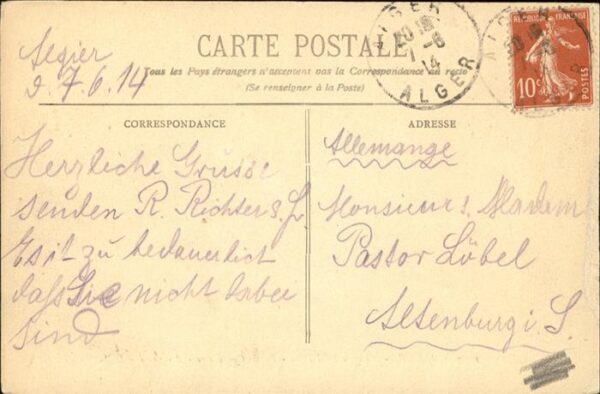 Algier
d. 7.6.14
CARTE POSTALE
Tous les Pays étrangers n'acceptent pas la Correspondance au recto
(Se renseigner à la Poste)
ALGER
ALGER
RÉPUBLIQUE FRANÇAISE
10c
POSTES
CORRESPONDANCE
Herzliche Grüsse
senden R. Richter & Fr.
Es ist zu bedauerlich
daß Sie nicht dabei
sind
ADRESSE
Allemange
Monsieur & Madem
Pastor Löbel
Altenburg i. S.